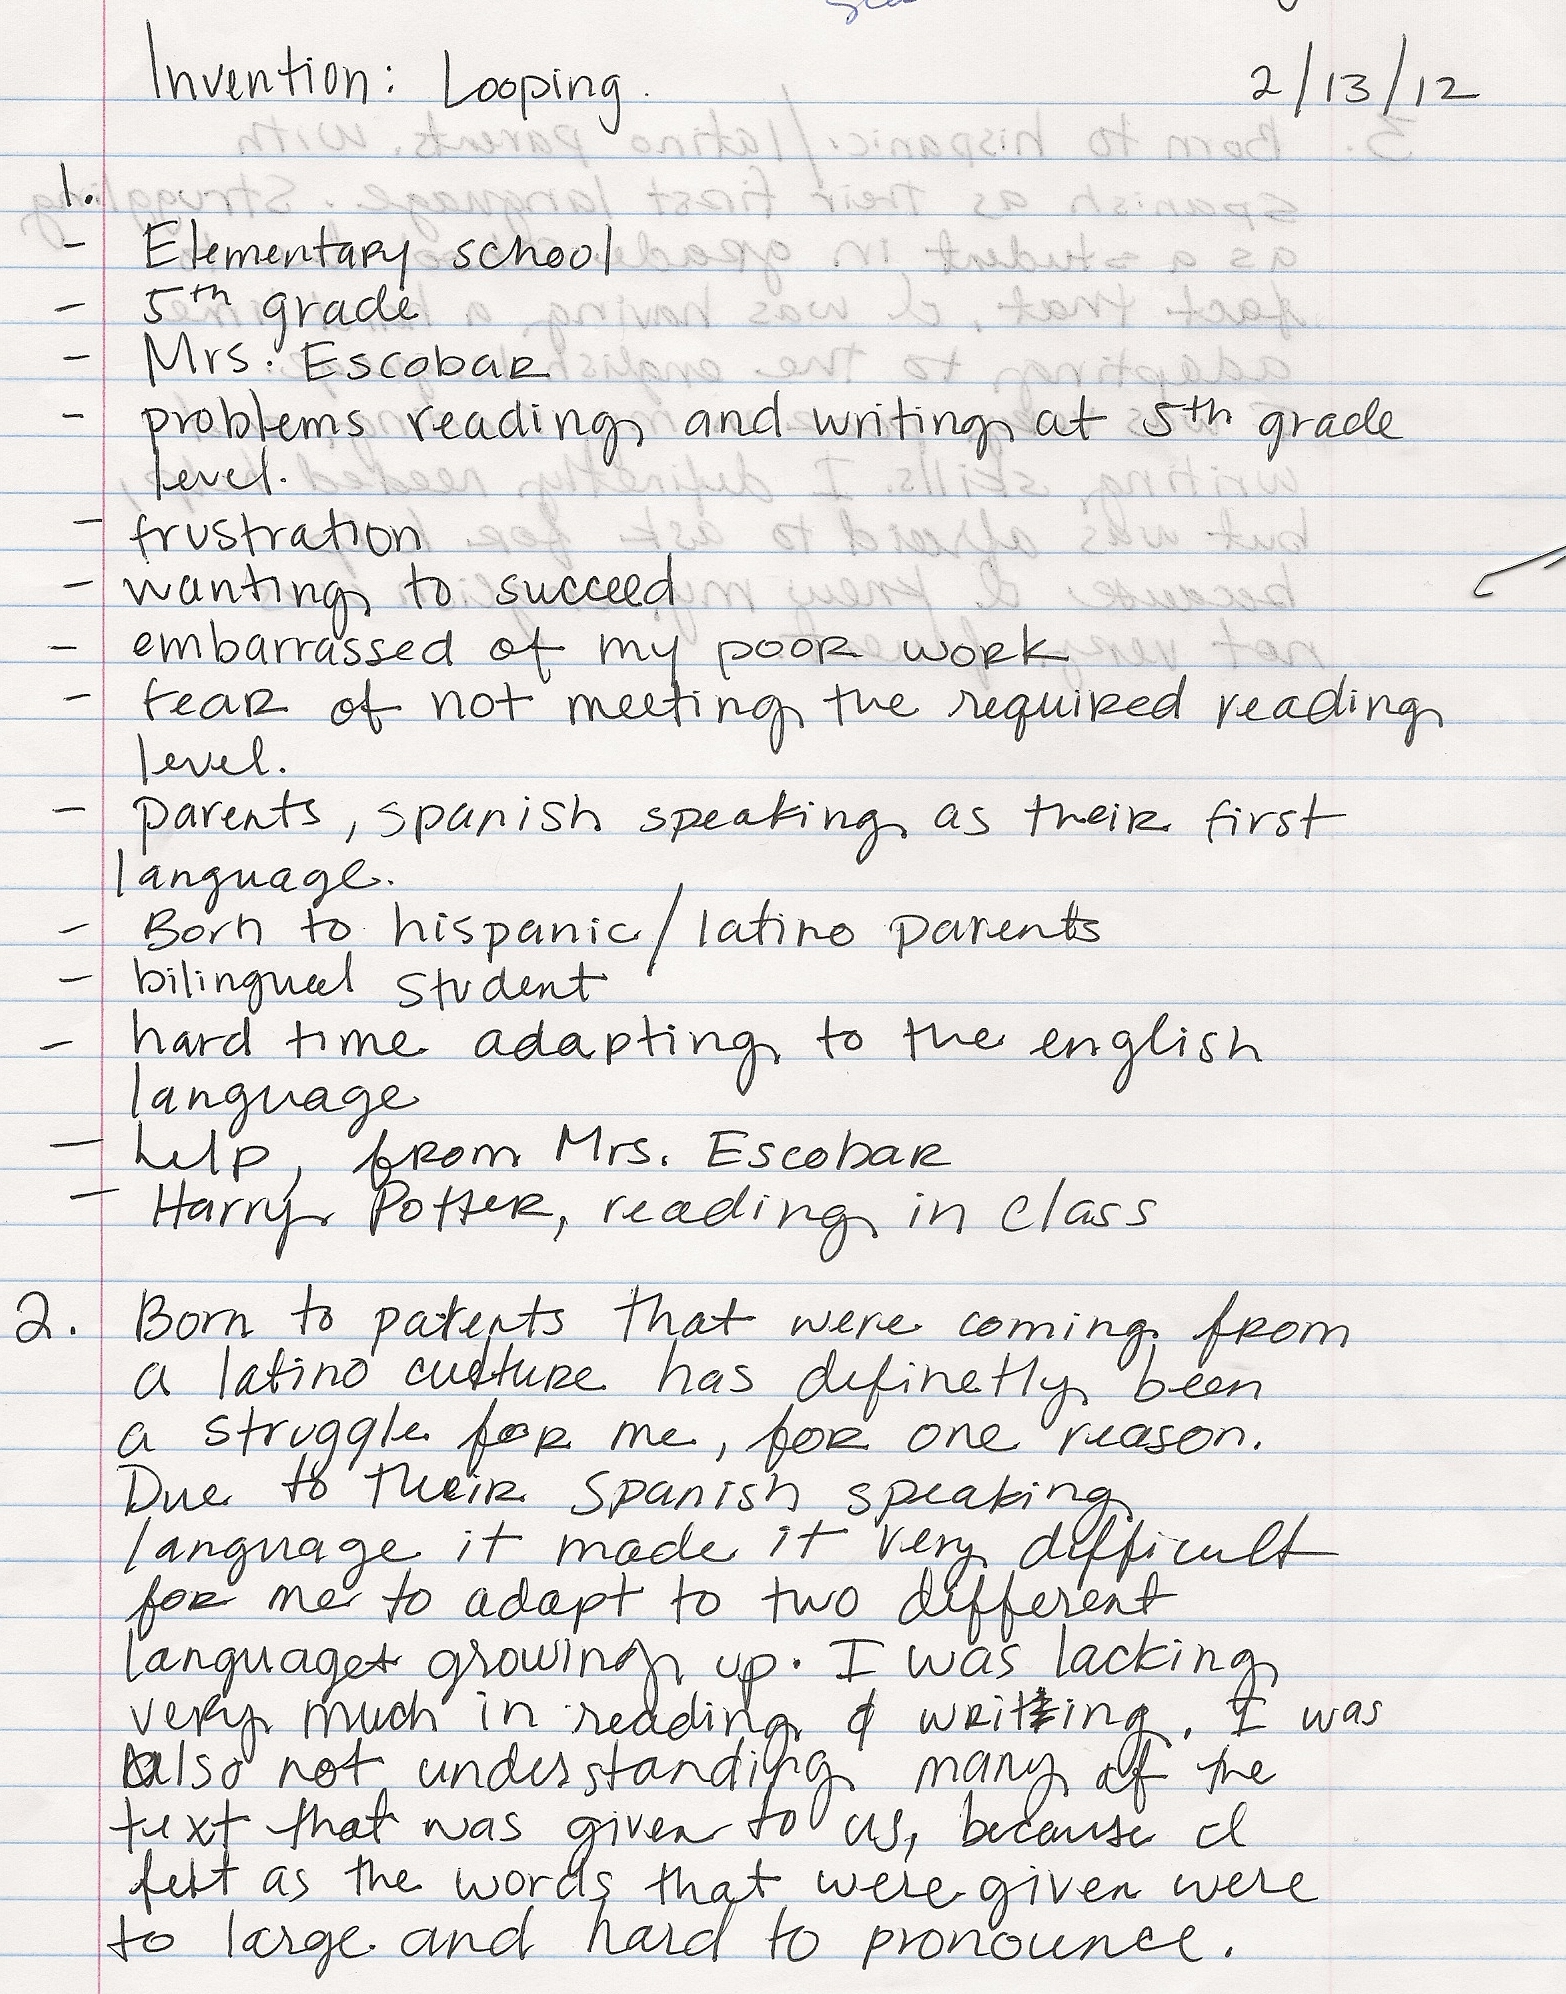 Invention: Looping. 2/13/12
1.
- Elementary school
- 5th grade
- Mrs. Escobar
- problems reading and writing at 5th grade
level.
- frustration
- wanting to succeed
- embarrassed of my poor work
- fear of not meeting the required reading
level.
- parents, spanish speaking as their first
language.
- Born to hispanic/latino parents
- bilingual student
- hard time adapting to the english
language
- help, from Mrs. Escobar
- Harry Potter, reading in class
2. Born to parents that were coming from
a latino culture has definetly been
a struggle for me, for one reason.
Due to their Spanish speaking
language it made it very difficult
for me to adapt to two different
languages growing up. I was lacking
very much in reading & writing. I was
also not understanding many of the
text that was given to us, because I
felt as the words that were given were
to large and hard to pronounce.